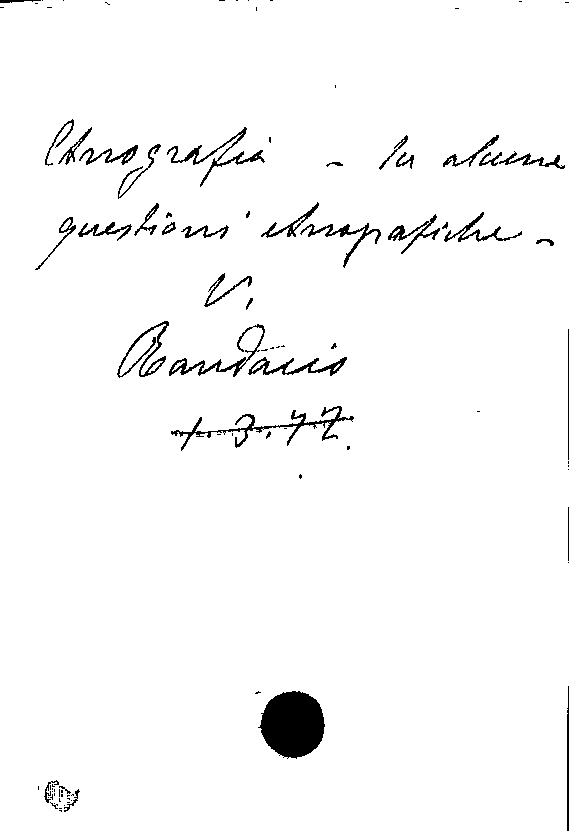 Etnografia - Su alcune
questioni etnografiche -
V.
Randacio
1.3.77.